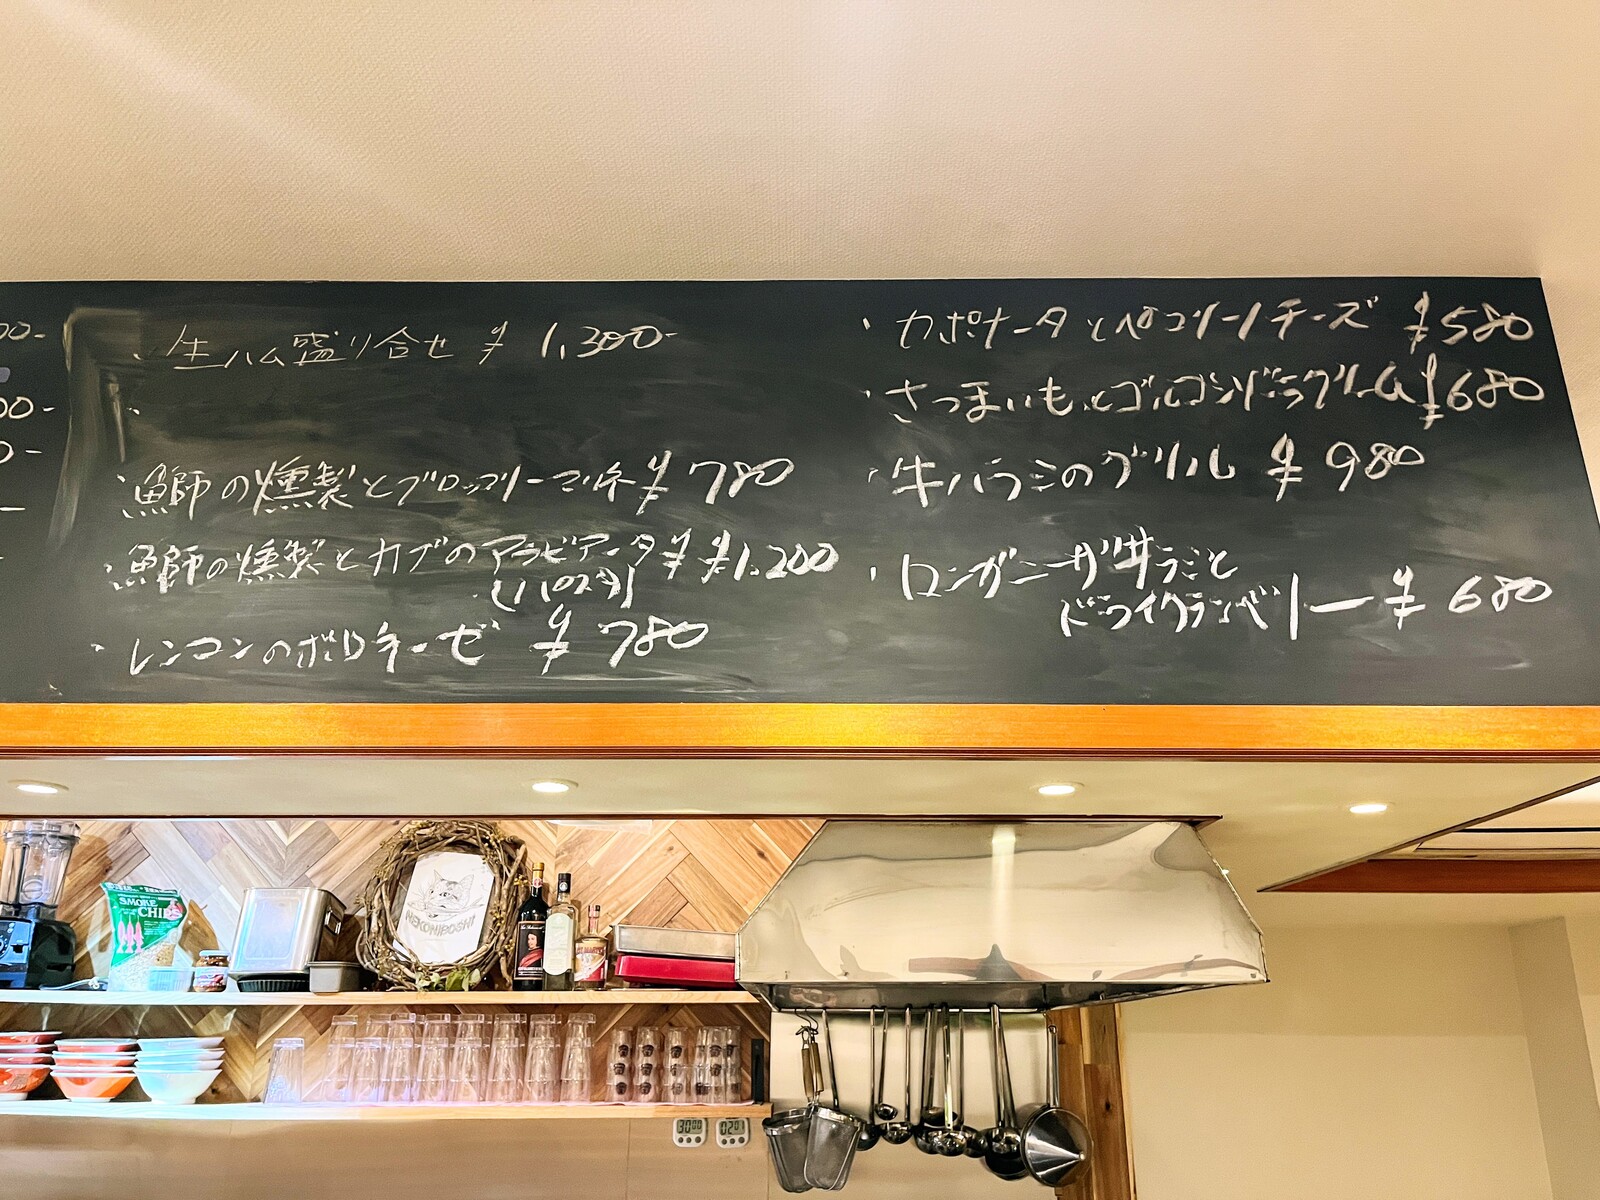 00-
00-
0-
・生ハム盛り合せ ¥ 1,300-
・
・魚師の燻製とブロッコリーマリネ ¥ 780
・魚師の燻製とカブのアラビアータ ¥ ¥1,200
(パスタ)
・レンコンのボロネーゼ ¥ 780
・カポナータとペコリーノチーズ ¥580
・さつまいもとゴルゴンゾーラクリーム ¥680
・牛ハラミのグリル ¥ 980
・ロンガニーザ サラミと
ドライクランベリー ¥ 680
SMOKE
CHIP
NEKONIBOSHI
30 00
02 01